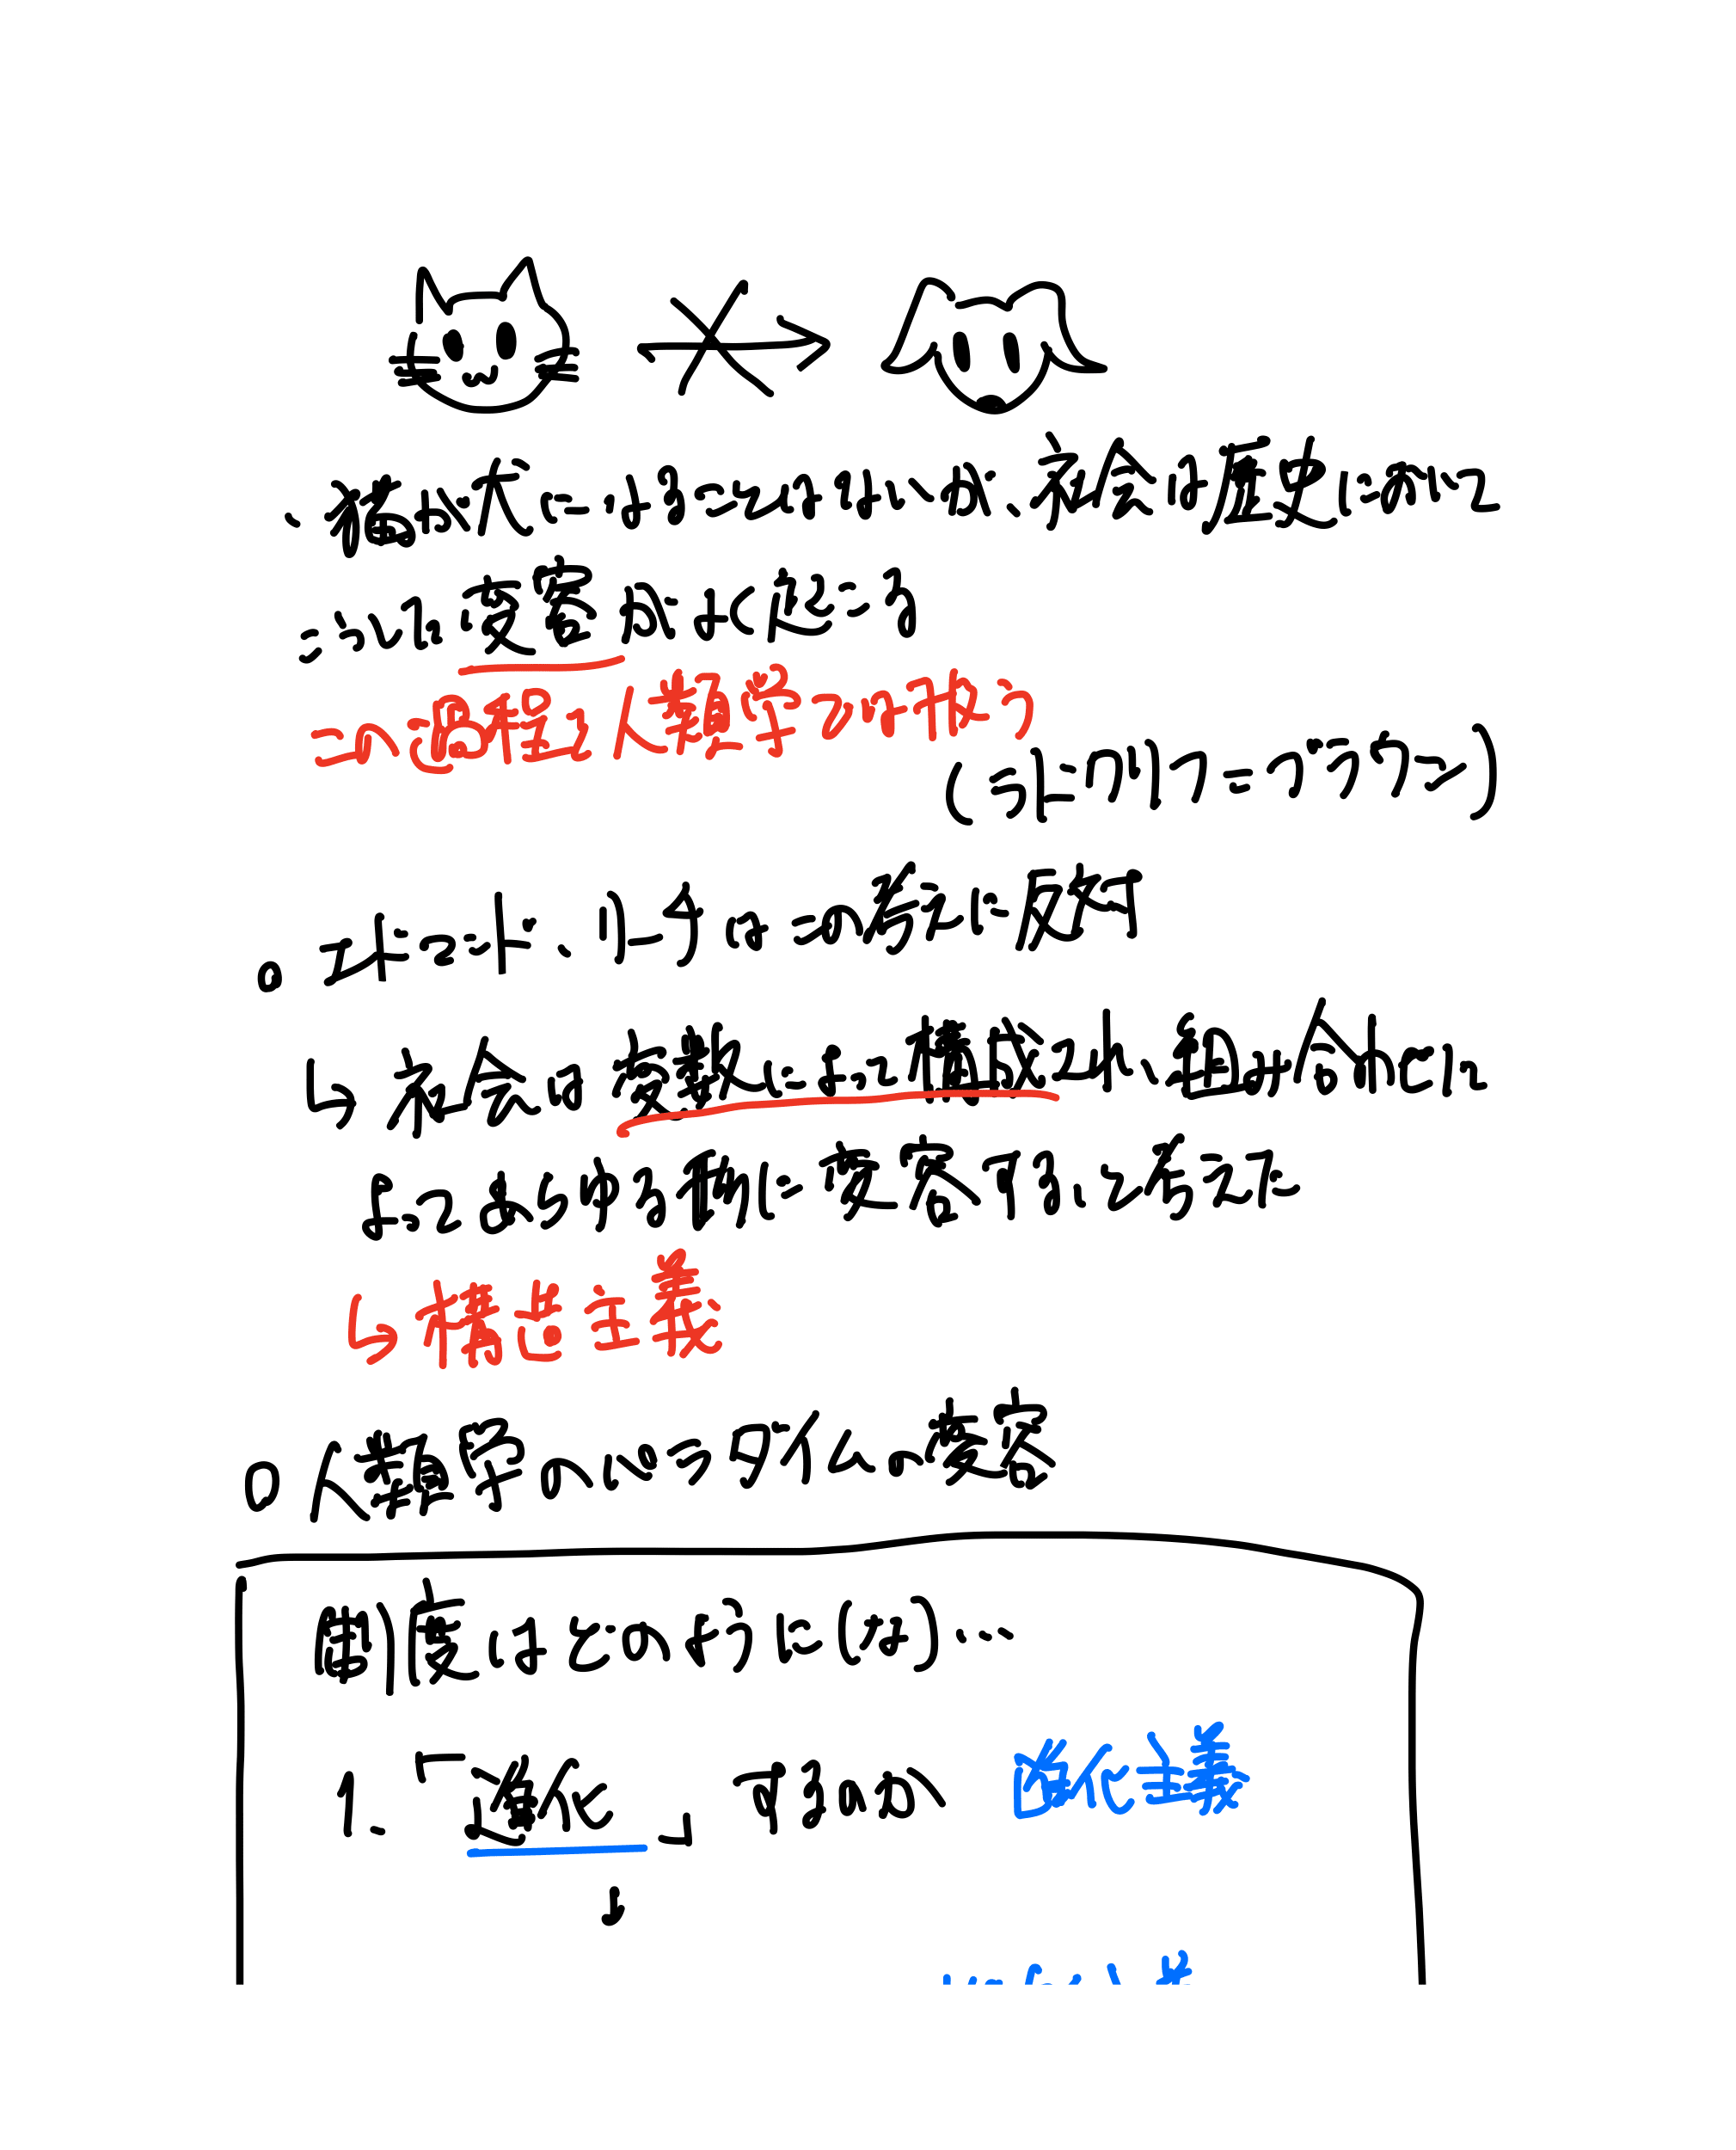 ・猫が犬にはなってはないが、社会は歴史において
こういった変容がよく起こる
この過程に人類学では付抜う
(ラドクリフ=ブラウン)
○ エドマンド、リーチはこの考えに反対
↳ 社会は変数によって構成され、組み合わせに
よってあらゆる種に変容する、と考えた
↳ 構造主義
○ 人類学のパラダイムの変容
制度はどのように(は)…
1.「進化」するのか 進化主義
↓